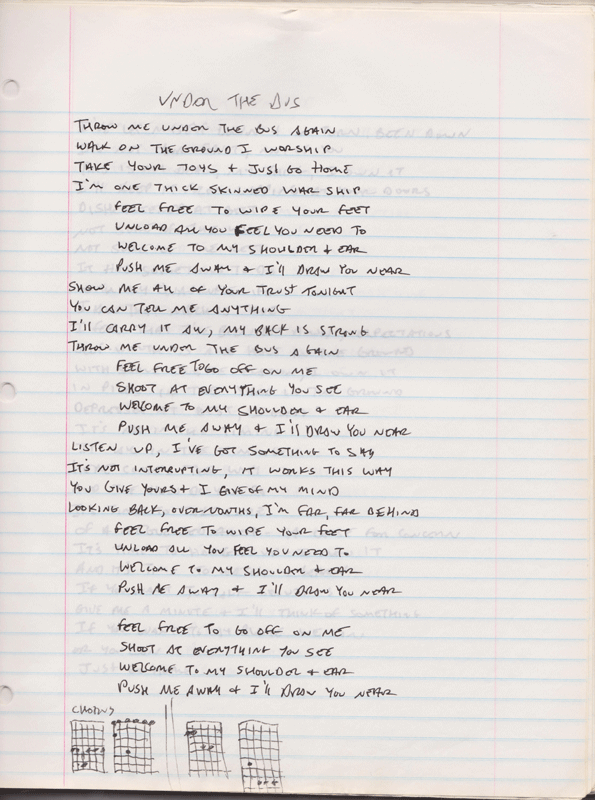 UNDER THE BUS
THROW ME UNDER THE BUS AGAIN
WALK ON THE GROUND I WORSHIP
TAKE YOUR TOYS & JUST GO HOME
I'M ONE THICK SKINNED WAR SHIP
FEEL FREE TO WIPE YOUR FEET
UNLOAD ALL YOU FEEL YOU NEED TO
WELCOME TO MY SHOULDER & EAR
PUSH ME AWAY & I'll DRAW YOU NEAR
SHOW ME ALL OF YOUR TRUST TONIGHT
YOU CAN TELL ME ANYTHING
I'll CARRY IT ALL, MY BACK IS STRONG
THROW ME UNDER THE BUS AGAIN
FEEL FREE TO GO OFF ON ME
SHOOT AT EVERYTHING YOU SEE
WELCOME TO MY SHOULDER & EAR
PUSH ME AWAY & I'll DRAW YOU NEAR
LISTEN UP, I'VE GOT SOMETHING TO SAY
IT'S NOT INTERRUPTING, IT WORKS THIS WAY
YOU GIVE YOURS & I GIVE OF MY MIND
LOOKING BACK, OVER MONTHS, I'M FAR, FAR BEHIND
FEEL FREE TO WIPE YOUR FEET
UNLOAD ALL YOU FEEL YOU NEED TO
WELCOME TO MY SHOULDER & EAR
PUSH ME AWAY & I'll DRAW YOU NEAR
FEEL FREE TO GO OFF ON ME
SHOOT AT EVERYTHING YOU SEE
WELCOME TO MY SHOULDER & EAR
PUSH ME AWAY & I'll DRAW YOU NEAR
CHORUS